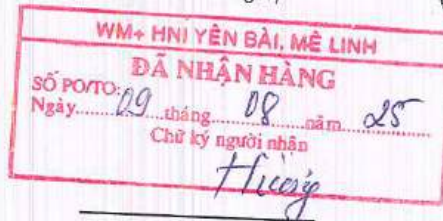 WM+ HNI YÊN BÀI, MÊ LINH
ĐÃ NHẬN HÀNG
SỐ PO/TO:
Ngày 09 tháng 08 năm 25
Chữ ký người nhận